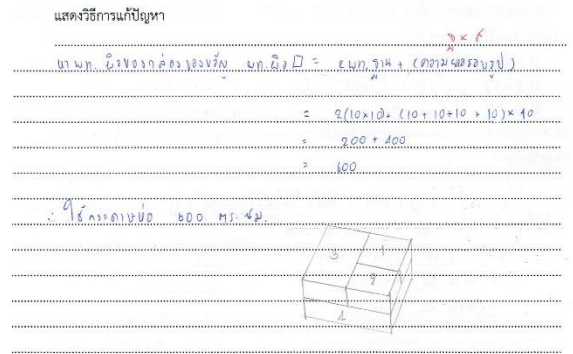 แสดงวิธีการแก้ปัญหา
หา พท. ผิวของกล่องของขวัญ พท. ผิว □ = 2 พท. ฐาน + (ความยาวรอบรูป)
= 2(10×10) + (10 + 10 + 10 + 10) × 10
= 200 + 400
= 600
∴ ใช้กระดาษห่อ 600 ตร. ซม.
3 1
2
4